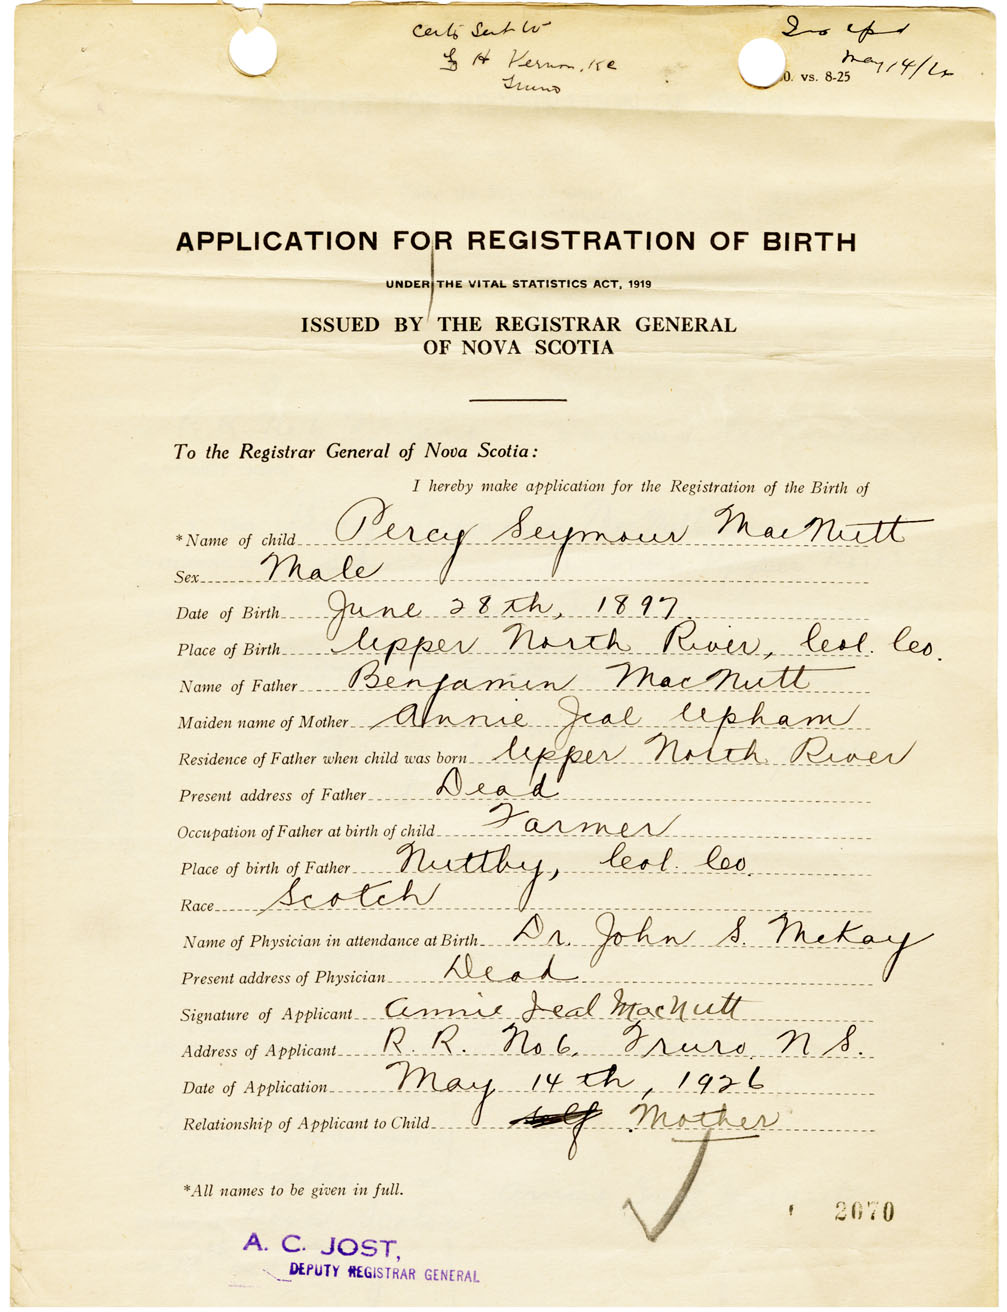 Certs Sent to
H Vernon, KC
Truro
May 14/26
0. vs. 8-25
APPLICATION FOR REGISTRATION OF BIRTH
UNDER THE VITAL STATISTICS ACT, 1919
ISSUED BY THE REGISTRAR GENERAL
OF NOVA SCOTIA
To the Registrar General of Nova Scotia:
I hereby make application for the Registration of the Birth of
*Name of child Percy Seymour MacNutt
Sex Male
Date of Birth June 28th, 1897
Place of Birth Upper North River, Col. Co.
Name of Father Benjamin MacNutt
Maiden name of Mother Annie Jeal Upham
Residence of Father when child was born Upper North River
Present address of Father Dead
Occupation of Father at birth of child Farmer
Place of birth of Father Nuttby, Col. Co.
Race Scotch
Name of Physician in attendance at Birth Dr. John S. McKay
Present address of Physician Dead
Signature of Applicant Annie Jeal MacNutt
Address of Applicant R. R. No 6, Truro, N S.
Date of Application May 14th, 1926
Relationship of Applicant to Child self Mother
*All names to be given in full.
2070
A. C. JOST,
DEPUTY REGISTRAR GENERAL